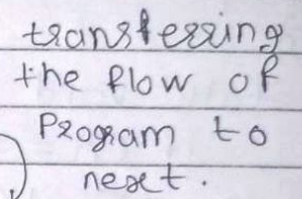 transferring
the flow of
Program to
next.